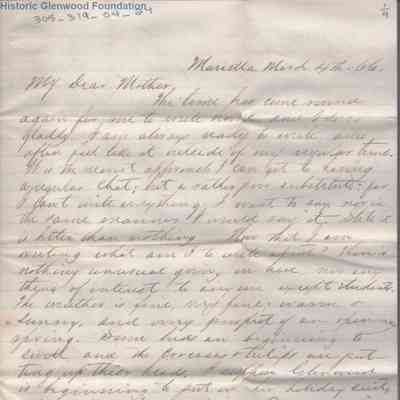 Historic Glenwood Foundation
1/9
Marietta March 4th -66.
My Dear Mother,
The time has come round
again for me to write and I do so
gladly. I am always ready to write and
often feel like it outside of my regular time.
It is the nearest approach I can get to having
a regular chat; but a rather poor substitute: for
I can't write everything I want to say nor in
the same manner I would say it. Still it
is better than nothing. Now that I am
writing what am I to write about? There is
nothing unusual going on here nor any
thing of interest to any one except students.
The weather is fine, very fine: warm &
sunny, and every prospect of an opening
spring. Some buds are beginning to
swell and the Crocuses & tulips are put
ting up their heads. I suppose Glenwood
is beginning to put on its holiday suit,